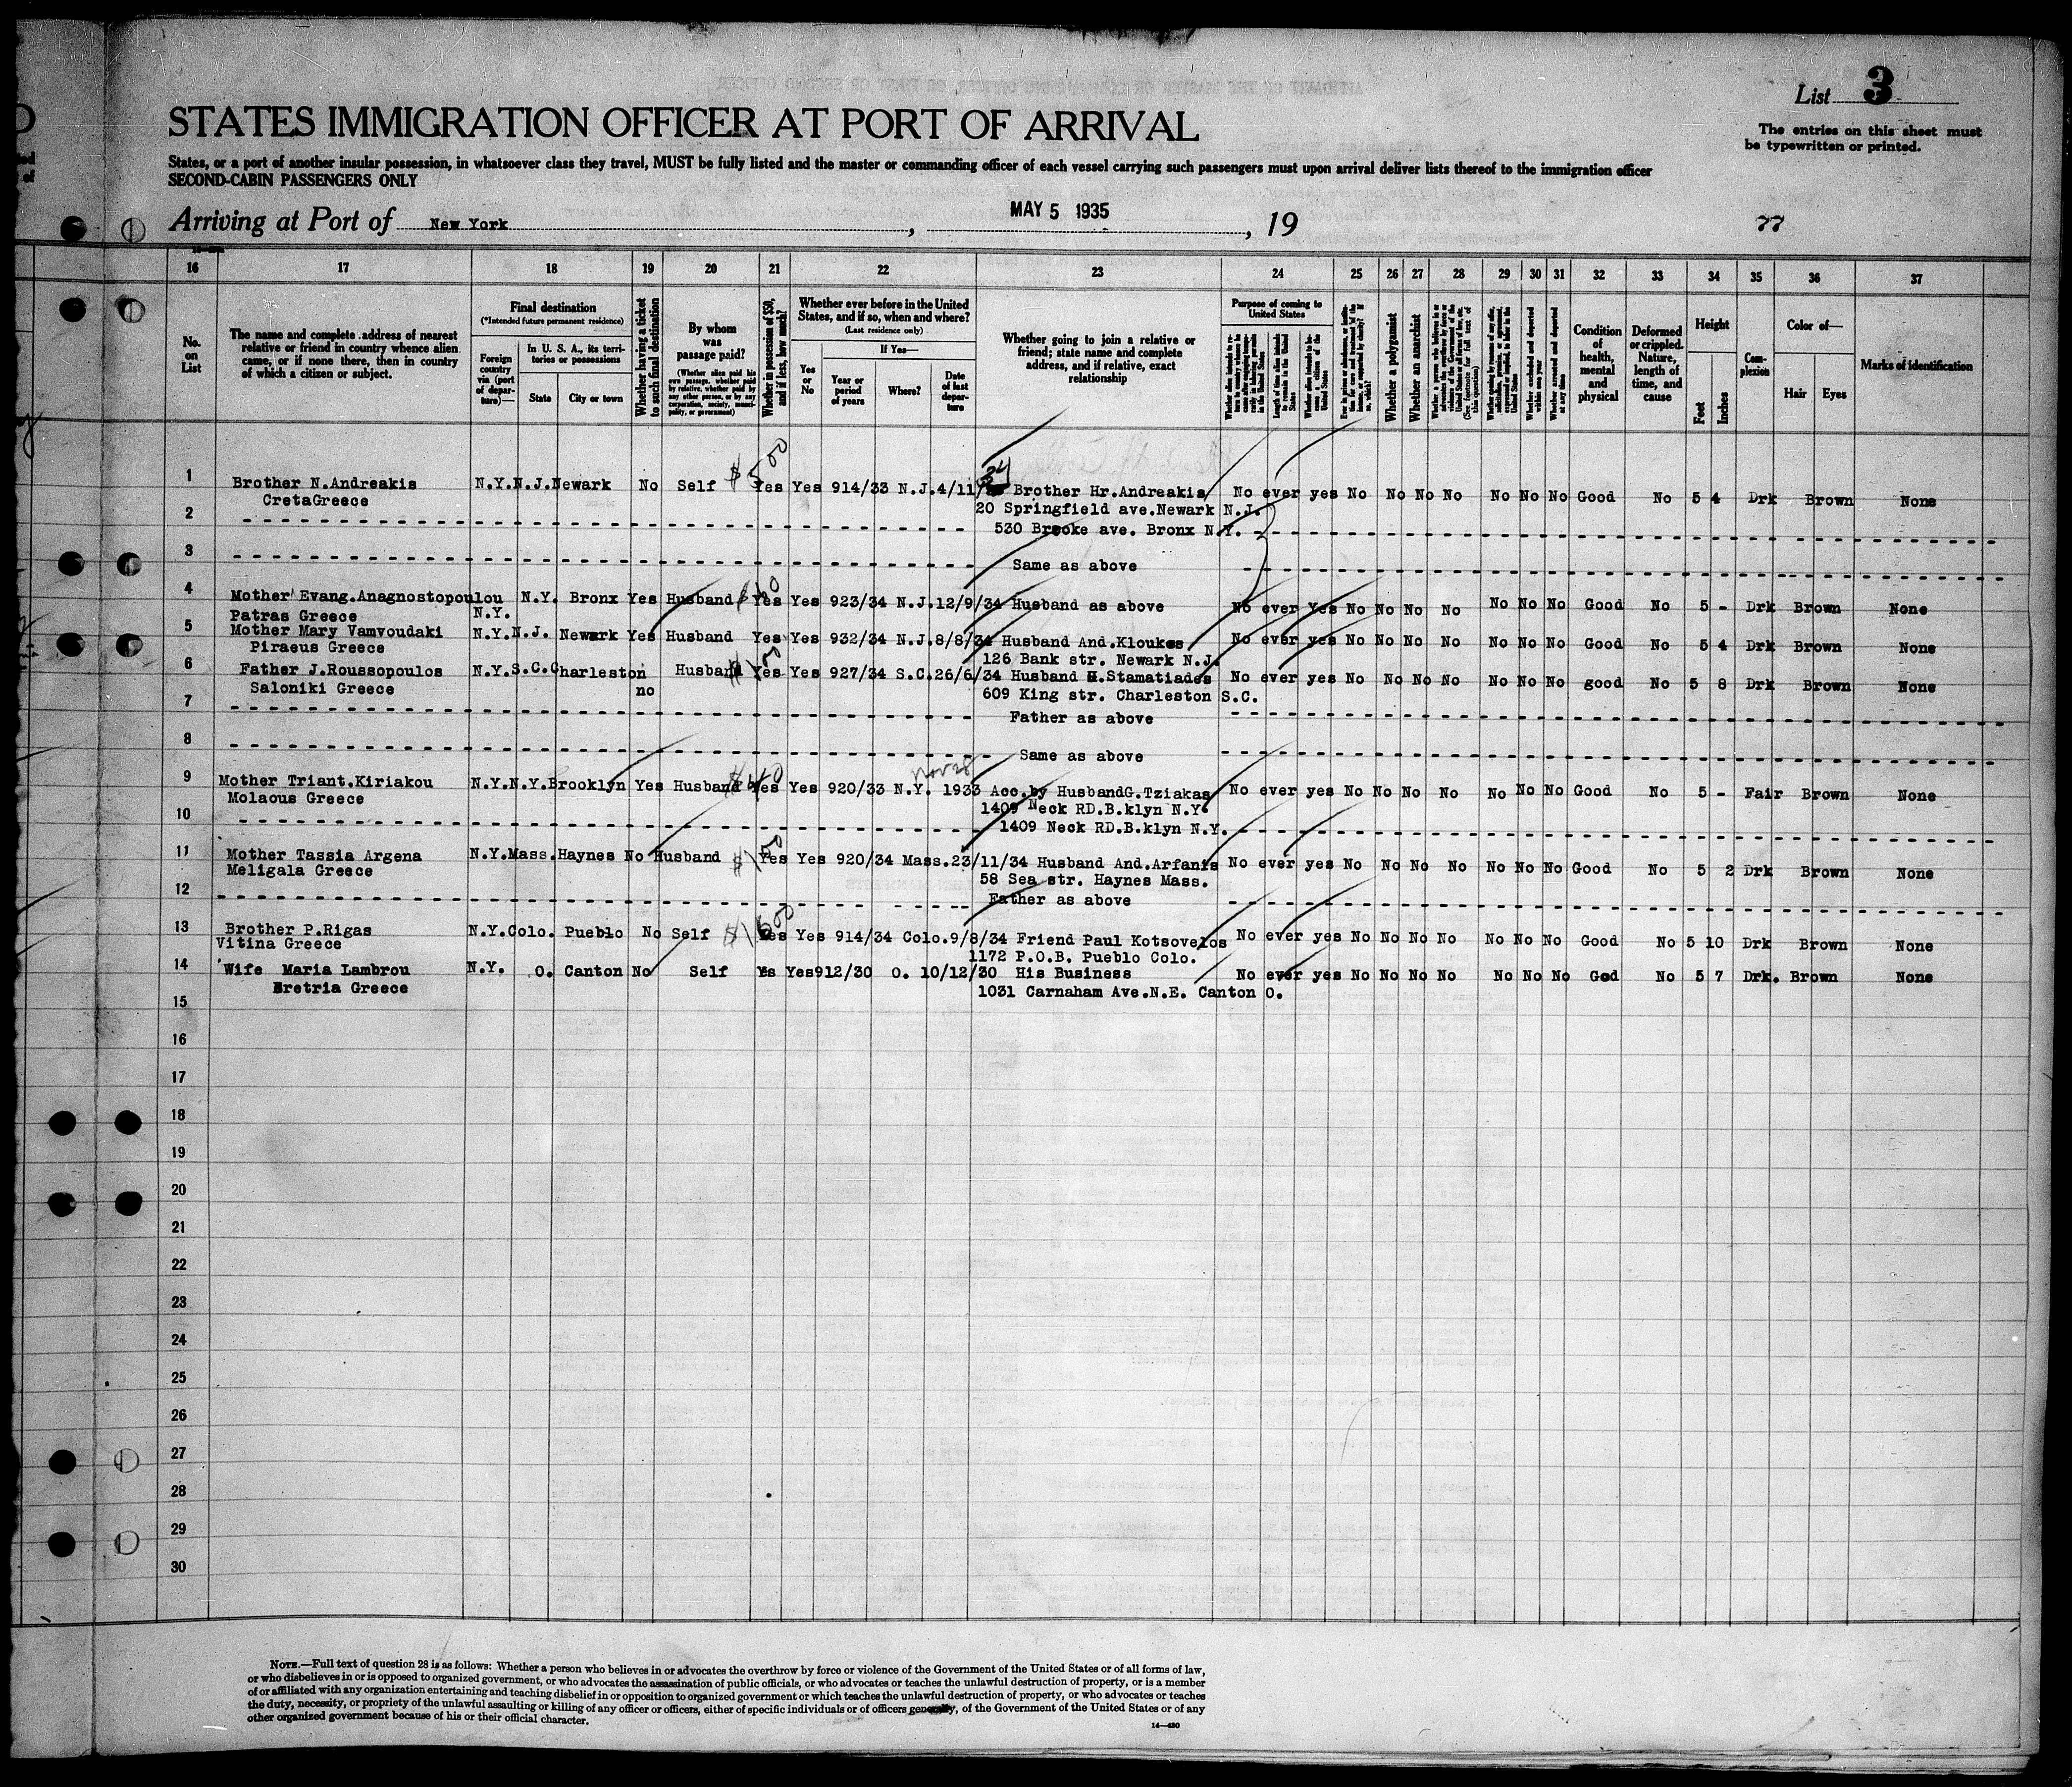 List 3
The entries on this sheet must
be typewritten or printed.
STATES IMMIGRATION OFFICER AT PORT OF ARRIVAL
States, or a port of another insular possession, in whatsoever class they travel, MUST be fully listed and the master or commanding officer of each vessel carrying such passengers must upon arrival deliver lists thereof to the immigration officer
SECOND-CABIN PASSENGERS ONLY
Arriving at Port of New York, MAY 5 1935, 19 77
16 17 18 19 20 21 22 23 24 25 26 27 28 29 30 31 32 33 34 35 36 37
No. on List
The name and complete address of nearest
relative or friend in country whence alien
came, or if none there, then in country
of which a citizen or subject.
Final destination
(*Intended future permanent residence)
Foreign country via (port of departure)—
In U. S. A., its territories or possessions
State City or town
Whether having a ticket to such final destination
By whom was passage paid?
(Whether alien paid his own passage, whether paid by relative, whether paid by any other person, or by any corporation, society, municipality, or government)
Whether in possession of $50, and if less, how much?
Whether ever before in the United States, and if so, when and where?
(Last residence only)
If Yes—
Yes or No
Year or period of years
Where?
Date of last departure
Whether going to join a relative or
friend; state name and complete
address, and if relative, exact
relationship
Purpose of coming to United States
Whether a polygamist
Whether an anarchist
Condition of health, mental and physical
Deformed or crippled. Nature, length of time, and cause
Height
Feet Inches
Complexion
Color of—
Hair Eyes
Marks of identification
1 Brother N.Andreakis N.Y. N.J. Newark No Self $500 Yes Yes 914/33 N.J. 4/11/34 Brother Hr.Andreakis No ever yes No No No No No No No Good No 5 4 Drk Brown None
CretaGreece 20 Springfield ave.Newark N.J.
2 530 Brooke ave. Bronx N.Y.
3 Same as above
4 Mother Evang.Anagnostopoulou N.Y. Bronx Yes Husband $40 Yes Yes 923/34 N.J. 12/9/34 Husband as above No ever Yes No No No No No No No Good No 5 - Drk Brown None
Patras Greece N.Y.
5 Mother Mary Vamvoudaki N.Y. N.J. Newark Yes Husband Yes Yes 932/34 N.J. 8/8/34 Husband And.Kloukes No ever yes No No No No No No No Good No 5 4 Drk Brown None
Piraeus Greece 126 Bank str. Newark N.J.
6 Father J.Roussopoulos N.Y. S.C. Charleston no Husband $100 Yes Yes 927/34 S.C. 26/6/34 Husband H.Stamatiades No ever yes No No No No No No No good No 5 8 Drk Brown None
Saloniki Greece 609 King str. Charleston S.C.
7 Father as above
8 Same as above
Nov 28
9 Mother Triant.Kiriakou N.Y. N.Y. Brooklyn Yes Husband $40 Yes Yes 920/33 N.Y. 1933 Acc.by HusbandG.Tziakas No ever yes No No No No No No No Good No 5 - Fair Brown None
Molaous Greece 1409 Neck RD.B.klyn N.Y.
10 1409 Neck RD.B.klyn N.Y.
11 Mother Tassia Argena N.Y. Mass. Haynes No Husband $100 Yes Yes 920/34 Mass. 23/11/34 Husband And.Arfanis No ever yes No No No No No No No Good No 5 2 Drk Brown None
Meligala Greece 58 Sea str. Haynes Mass.
12 Father as above
13 Brother P.Rigas N.Y. Colo. Pueblo No Self Yes Yes 914/34 Colo. 9/8/34 Friend Paul Kotsovelos No ever yes No No No No No No No Good No 5 10 Drk Brown None
Vitina Greece 1172 P.O.B. Pueblo Colo.
14 Wife Maria Lambrou N.Y. O. Canton No Self Yes Yes 912/30 O. 10/12/30 His Business No ever yes No No No No No No No God No 5 7 Drk. Brown None
Eretria Greece 1031 Carnaham Ave.N.E. Canton O.
15
16
17
18
19
20
21
22
23
24
25
26
27
28
29
30
NOTE.—Full text of question 28 is as follows: Whether a person who believes in or advocates the overthrow by force or violence of the Government of the United States or of all forms of law,
or who disbelieves in or is opposed to organized government, or who advocates the assassination of public officials, or who advocates or teaches the unlawful destruction of property, or is a member
of or affiliated with any organization entertaining and teaching disbelief in or opposition to organized government or which teaches the unlawful destruction of property, or who advocates or teaches
the duty, necessity, or propriety of the unlawful assaulting or killing of any officer or officers, either of specific individuals or of officers generally, of the Government of the United States or of any
other organized government because of his or their official character.
14—430